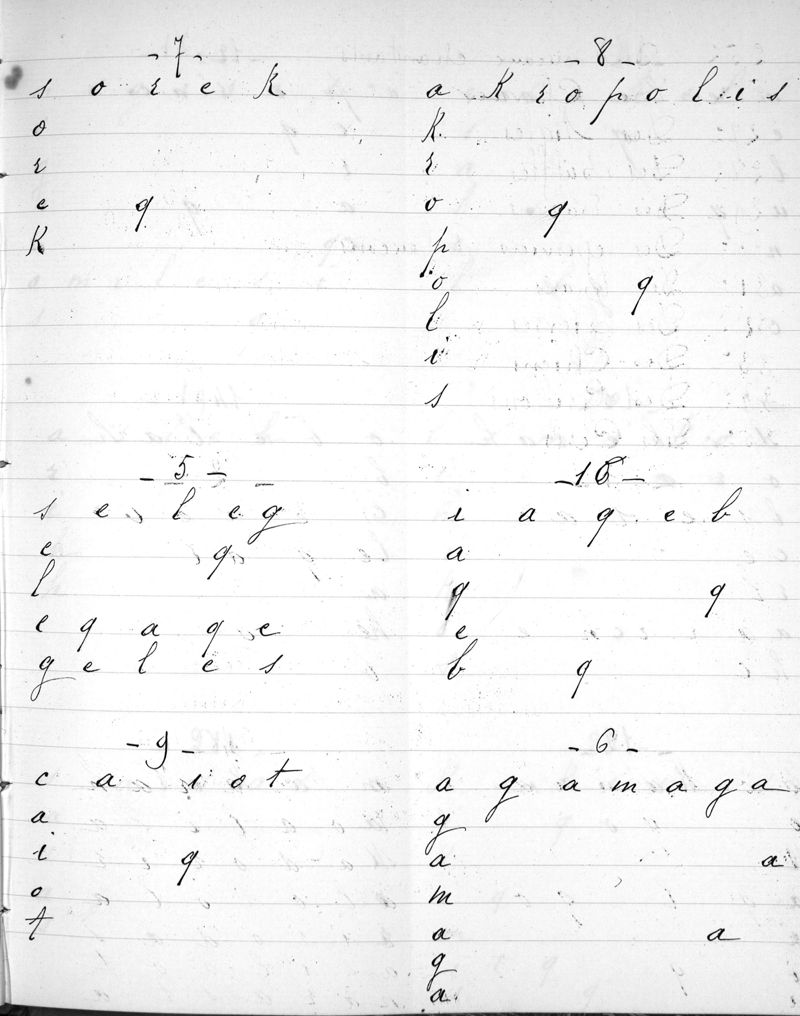 - 7 -
s o r e k
o
r
e q
K
- 8 -
a K r o p o l i s
K
r
o q
p
o q
l
i
s
- 5 -
s e l e g
e q
l
e q a q e
g e l e s
i a q e b
a
q q
e
b q
- 9 -
c a i o t
a
i q
o
t
- 6 -
a g a m a g a
g
a a
m
a a
g
a